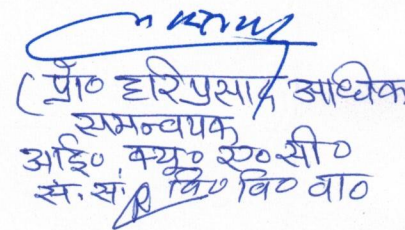 (प्रो० हरिप्रसाद अधिक
समन्वयक
आई० क्यू० ए० सी०
सं. सं. वि० वि० वा०